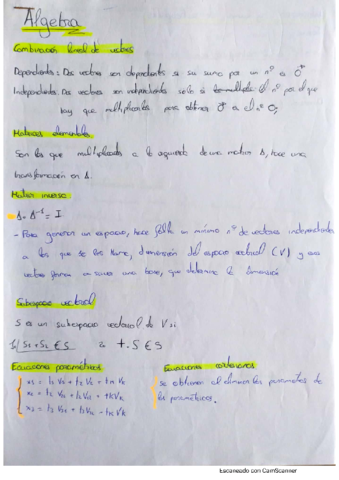 Algebra
Combinación lineal de vectores
Dependientes: Dos vectores son dependientes si su suma por un nº a 0
Independientes: Dos vectores son independientes solo si el nº por el que
hay que multiplicarlos para obtener 0 a el nº 0,
Matrices elementales
Son las que multiplicadas a la izquierda de una matriz A, hace una
transformación en A.
Matriz inversa
A · A⁻¹ = I
- Para generar un espacio, hace falta un mínimo nº de vectores independientes
a los que se les llama, dimensión del espacio vectorial (V) y esos
vectores forman una base, que determina la dimensión
Subespacio vectorial
S es un subespacio vectorial de V si
1/ S₁ + S₂ ∈ S 2 t.S ∈ S
Ecuaciones paramétricas
Ecuaciones cartesianas
se obtienen al eliminar los parámetros de
las paramétricas.
Escaneado con CamScanner